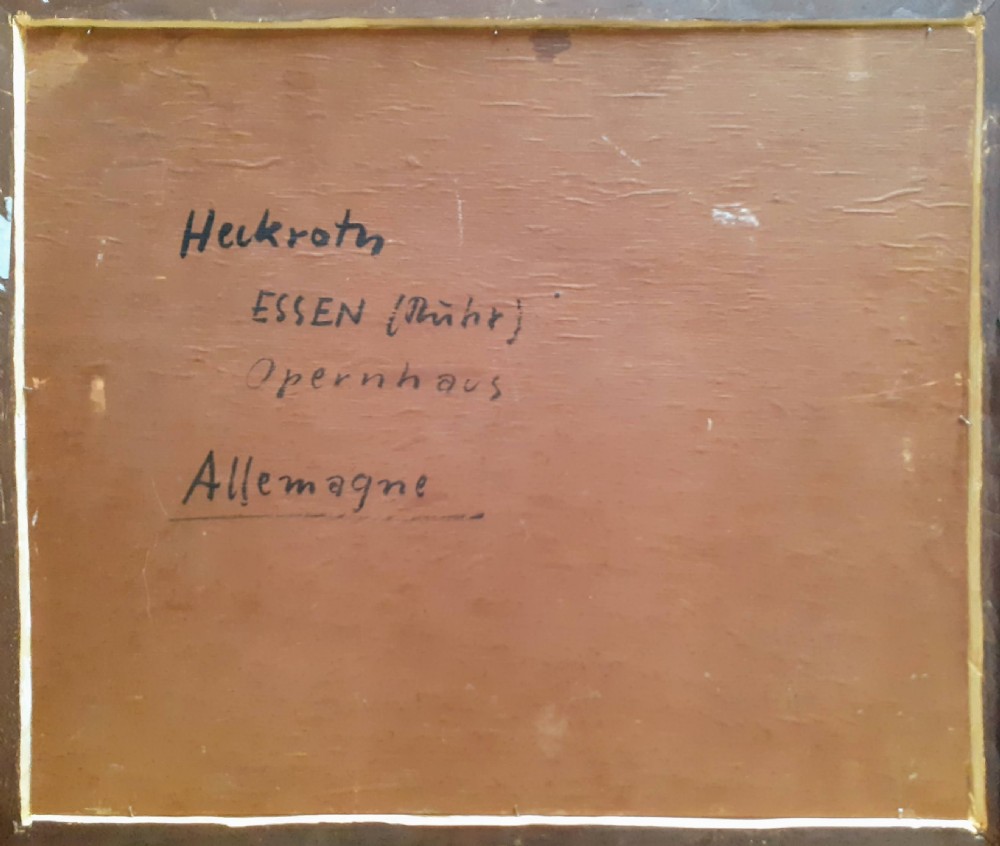 Heckroth
ESSEN (Ruhr)
Opernhaus
Allemagne